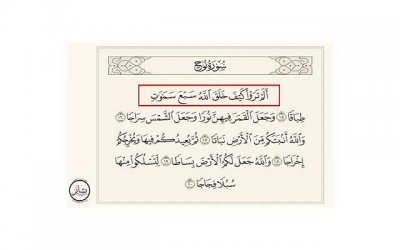 سُورَةُ نُوحٍ
أَلَمْ تَرَوْا۟ كَيْفَ خَلَقَ ٱللَّهُ سَبْعَ سَمَٰوَٰتٍ
طِبَاقًا ١٥ وَجَعَلَ ٱلْقَمَرَ فِيهِنَّ نُورًا وَجَعَلَ ٱلشَّمْسَ سِرَاجًا ١٦
وَٱللَّهُ أَنۢبَتَكُم مِّنَ ٱلْأَرْضِ نَبَاتًا ١٧ ثُمَّ يُعِيدُكُمْ فِيهَا وَيُخْرِجُكُمْ
إِخْرَاجًا ١٨ وَٱللَّهُ جَعَلَ لَكُمُ ٱلْأَرْضَ بِسَاطًا ١٩ لِّتَسْلُكُوا۟ مِنْهَا
سُبُلًا فِجَاجًا ٢٠